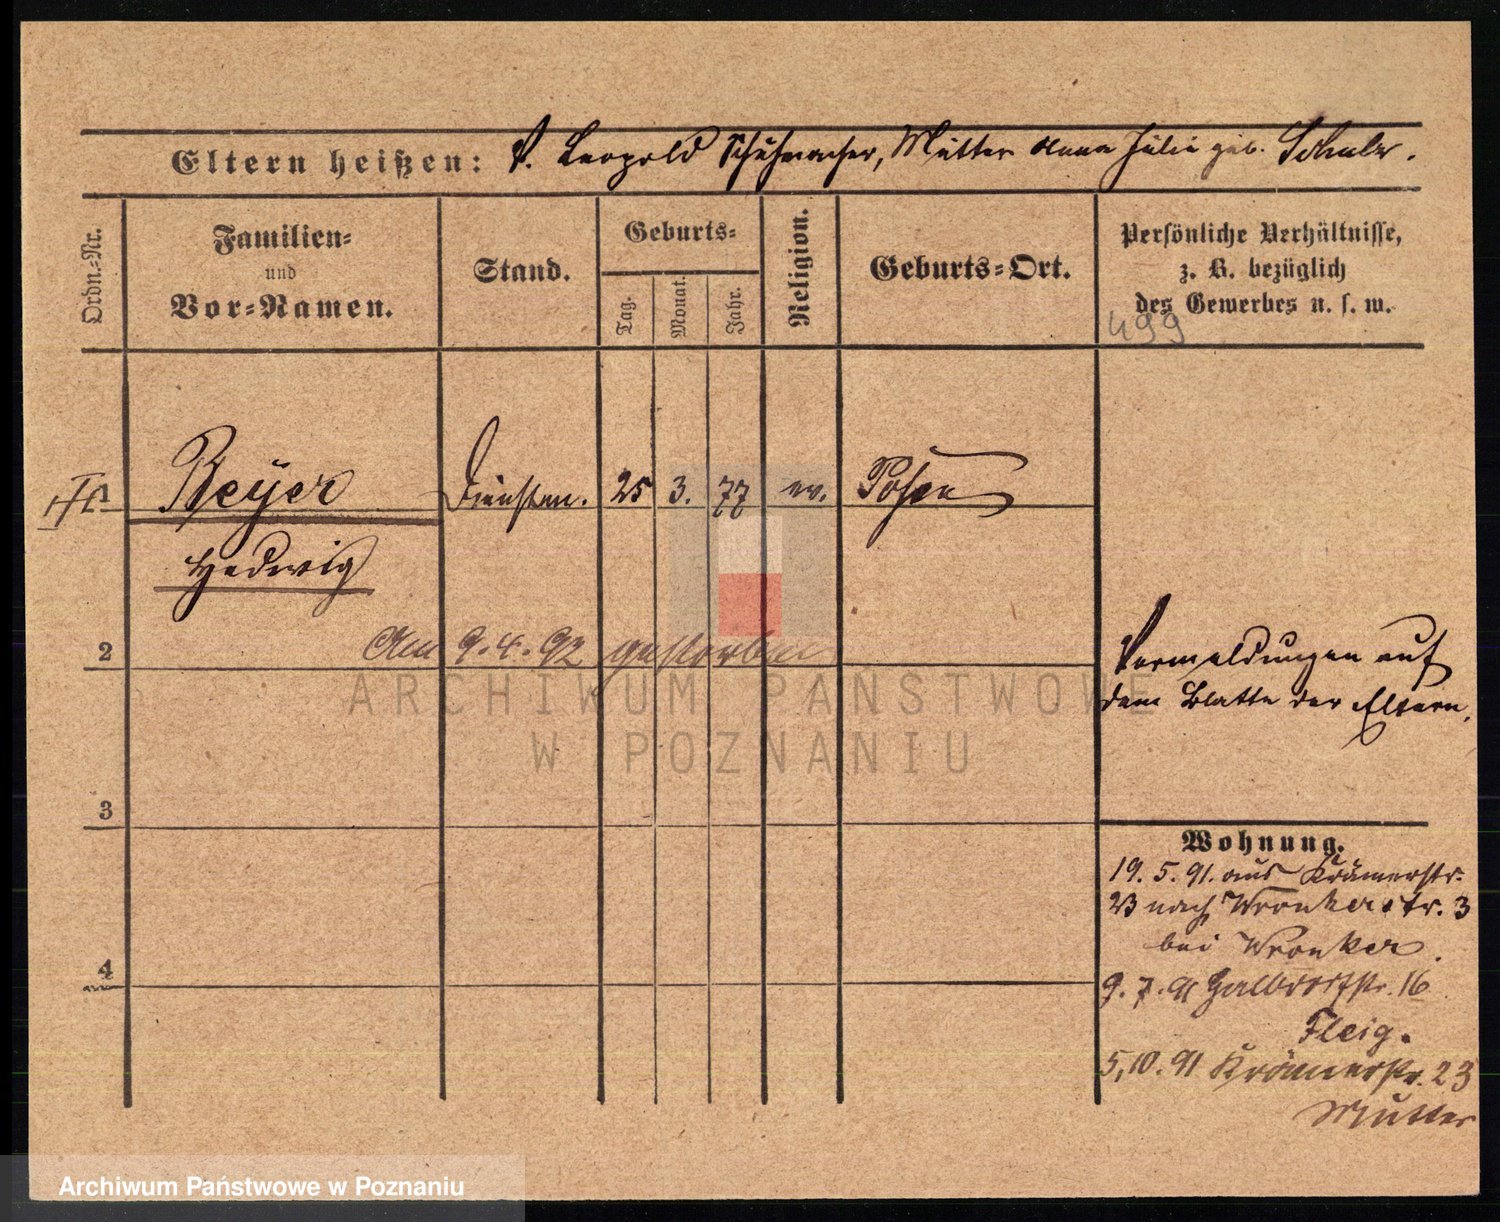 Eltern heißen: V. Leopold Schuhmacher, Mutter Anna Julie geb. Schulz.
Ordn.-Nr.
Familien-
und
Vor-Namen.
Stand.
Geburts-
Tag.
Monat.
Jahr.
Religion.
Geburts-Ort.
Persönliche Verhältnisse,
z. B. bezüglich
des Gewerbes u. s. w.
499
1 Beyer Dienstm. 25 3. 77 ev. Posen
Hedwig
2 Am 9.4.92 gestorben
Vermeldungen auf
dem Blatte der Eltern.
ARCHIWUM PAŃSTWOWE
W POZNANIU
3
Wohnung.
19. 5. 91. aus Krämerstr.
23 nach Wronkerstr. 3
bei Wronker.
4
9. 7. 91 Halbdorfstr. 16
Fleig.
5,10. 91 Krämerstr. 23
Mutter
Archiwum Państwowe w Poznaniu